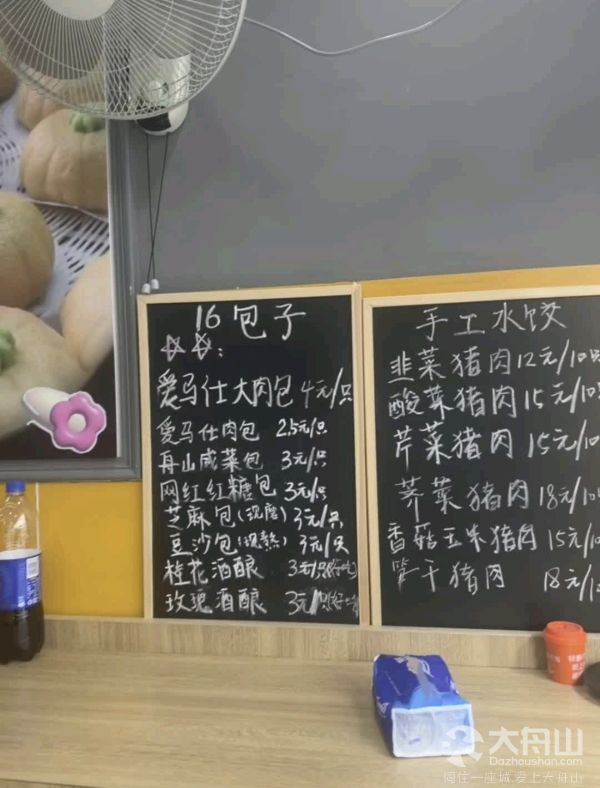 16包子
爱马仕大肉包 4元/只
爱马仕肉包 2.5元/只
舟山咸菜包 3元/只
网红红糖包 3元/只
芝麻包(现磨) 3元/只
豆沙包(现熬) 3元/只
桂花酒酿 3元/只(好吃)
玫瑰酒酿 3元/只(好吃)
手工水饺
韭菜猪肉 12元/10只
酸菜猪肉 15元/10
芹菜猪肉 15元/10
荠菜猪肉 18元/10
香菇玉米猪肉 15元/10
笋干猪肉 18元/1
大舟山
Dazhoushan.com
恋住一座城,爱上大舟山